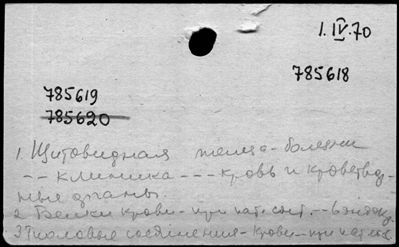 1.IV.70
785618
785619
785620
1. Щитовидная железа - болезни
-- клиника --- кровь и кроветвор-
ные органы.
2. Белки крови - при пат. сост. -
3 Тиоловые соединения - крови - при пат.